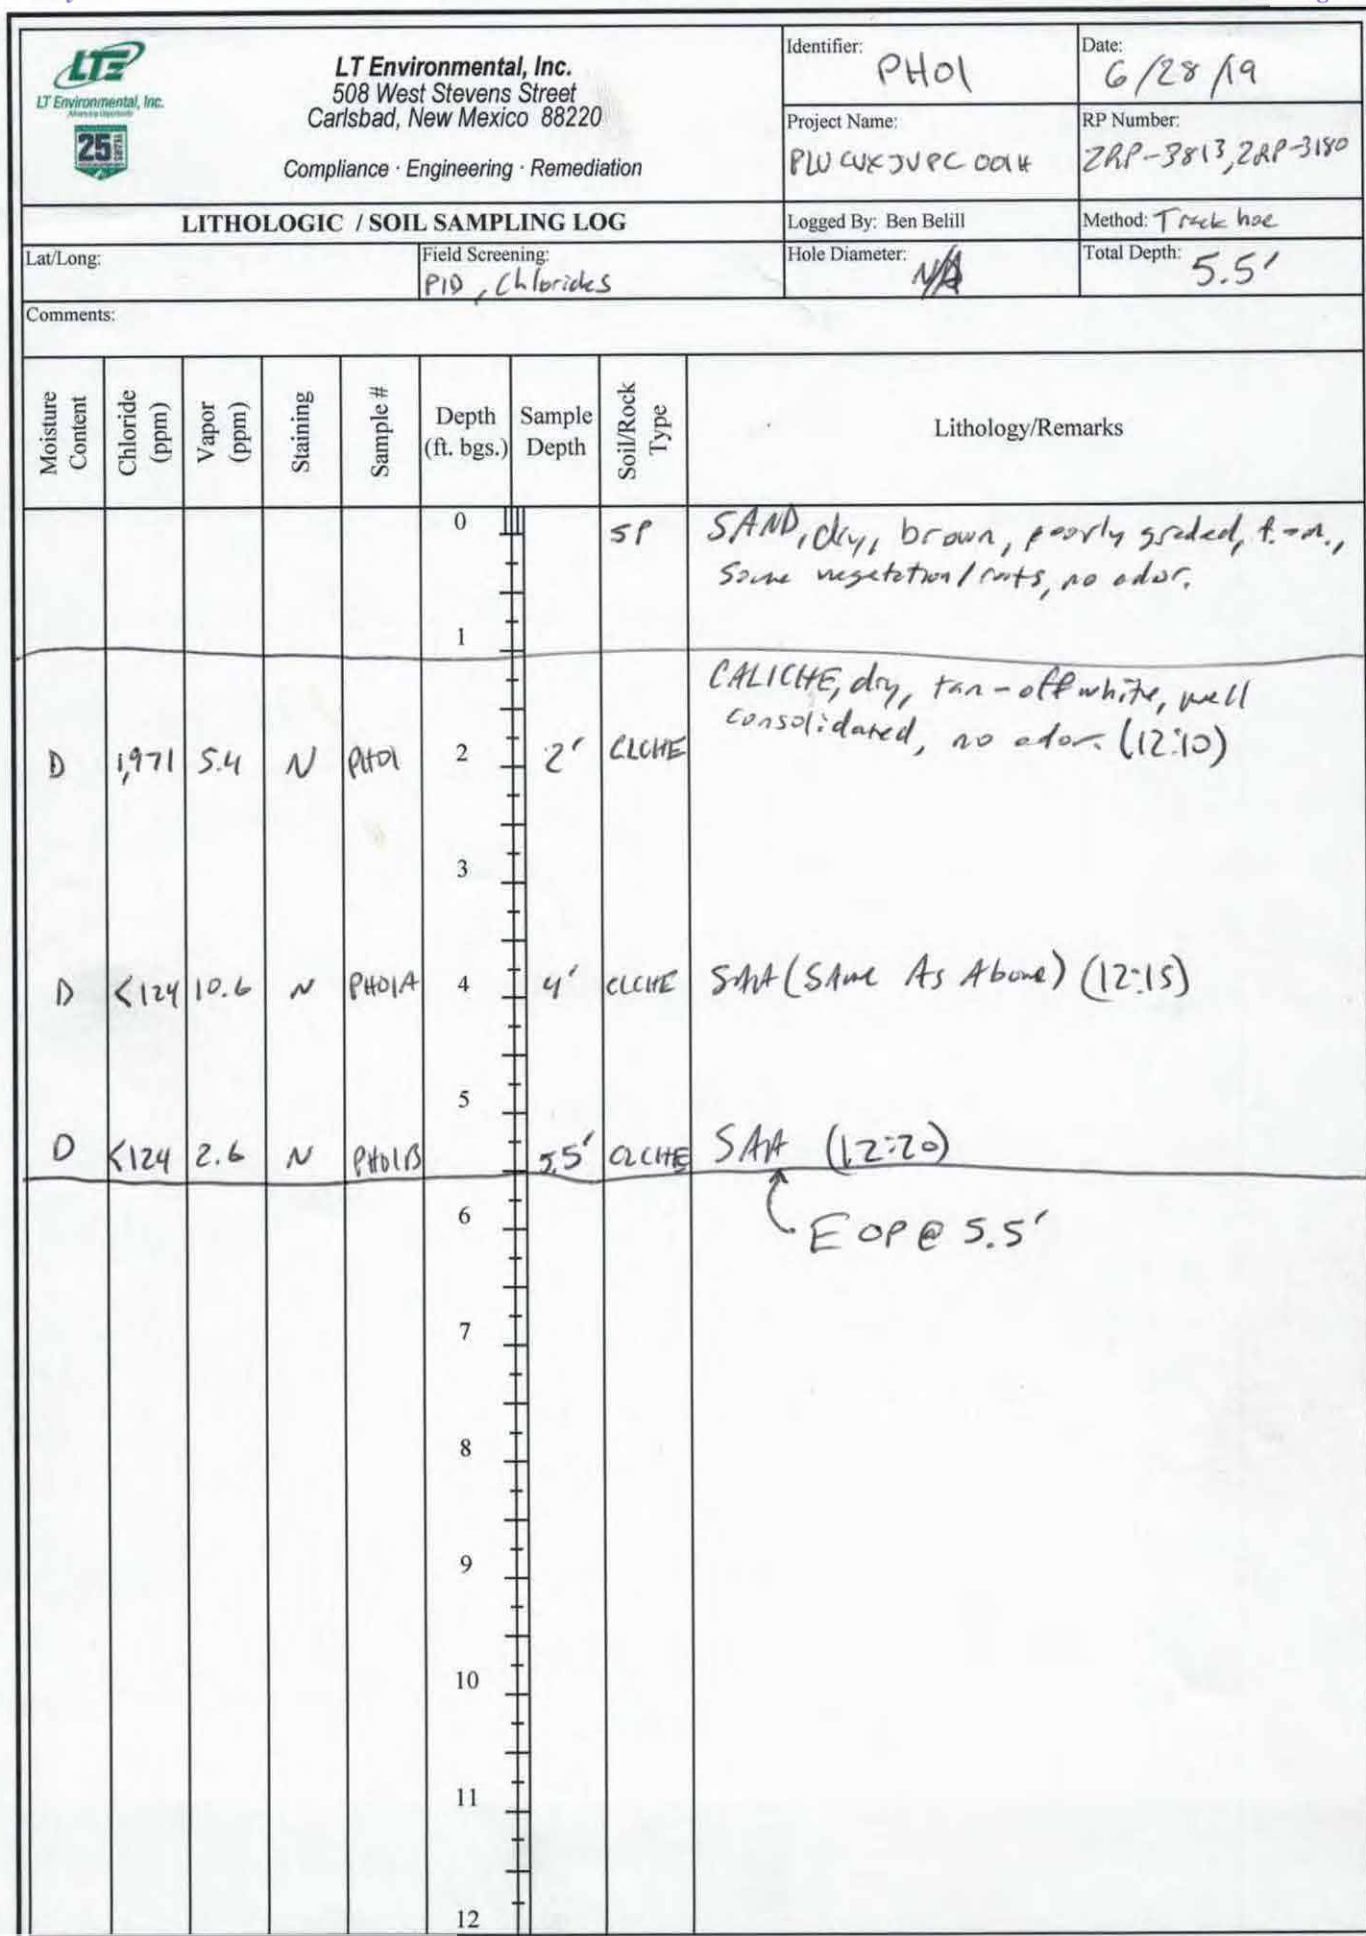 LTE
LT Environmental, Inc.
25
YEARS
LT Environmental, Inc.
508 West Stevens Street
Carlsbad, New Mexico 88220
Compliance · Engineering · Remediation
Identifier: PH01
Date: 6/28/19
Project Name: PLU CVX JV PC 001H
RP Number: 2RP-3813, 2RP-3180
LITHOLOGIC / SOIL SAMPLING LOG
Logged By: Ben Belill
Method: Track hoe
Lat/Long:
Field Screening: PID, Chlorides
Hole Diameter: N/A
Total Depth: 5.5'
Comments:
Moisture Content
Chloride (ppm)
Vapor (ppm)
Staining
Sample #
Depth (ft. bgs.)
Sample Depth
Soil/Rock Type
Lithology/Remarks
0 SP SAND, dry, brown, poorly graded, f.-m.,
some vegetation/roots, no odor.
1
CALICHE, dry, tan-off white, well
consolidated, no odor. (12:10)
D 1,971 5.4 N PH01 2 2' CLCHE
3
D <124 10.6 N PH01A 4 4' CLCHE SAA (SAme As Above) (12:15)
5
D <124 2.6 N PH01B 5.5' CLCHE SAA (12:20)
6
EOP @ 5.5'
7
8
9
10
11
12